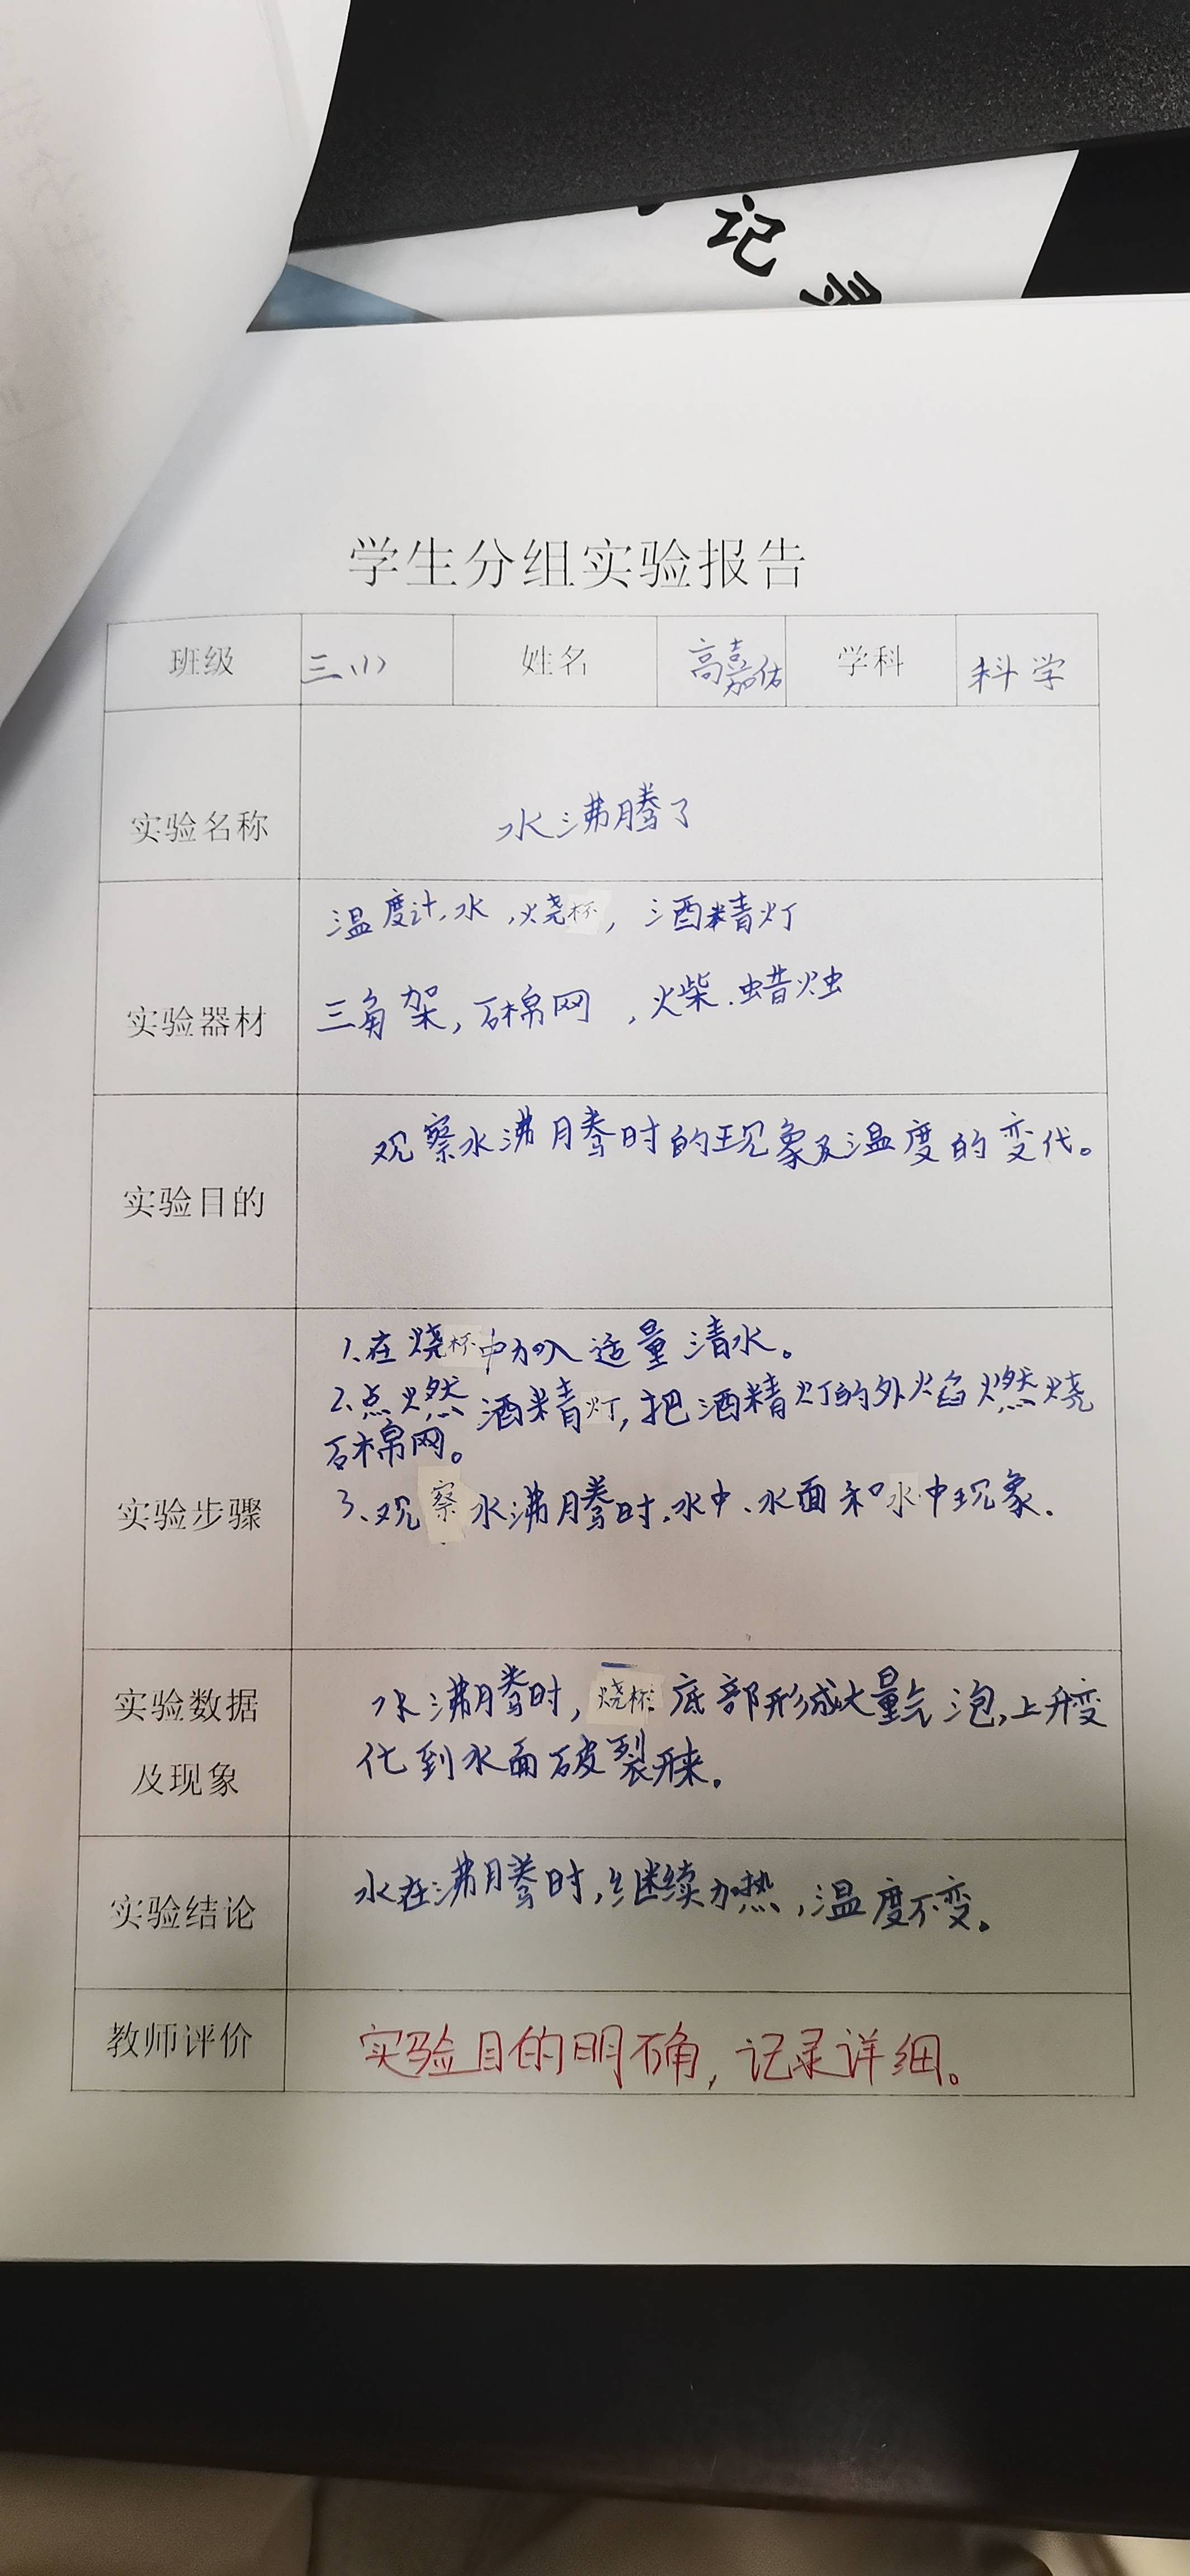 记录
学生分组实验报告
班级 三(1) 姓名 高嘉佑 学科 科学
实验名称 水沸腾了
温度计、水,烧杯,酒精灯
实验器材 三角架,石棉网,火柴、蜡烛
观察水沸腾时的现象及温度的变代。
实验目的
1、在烧杯中加入适量清水。
2、点燃酒精灯,把酒精灯的外焰燃烧
石棉网。
实验步骤 3、观察水沸腾时、水中、水面和水中现象.
实验数据 水沸腾时,烧杯底部形成大量气泡,上升变
及现象 化到水面破裂开来。
实验结论 水在沸腾时,继续加热,温度不变。
教师评价 实验目的明确,记录详细。